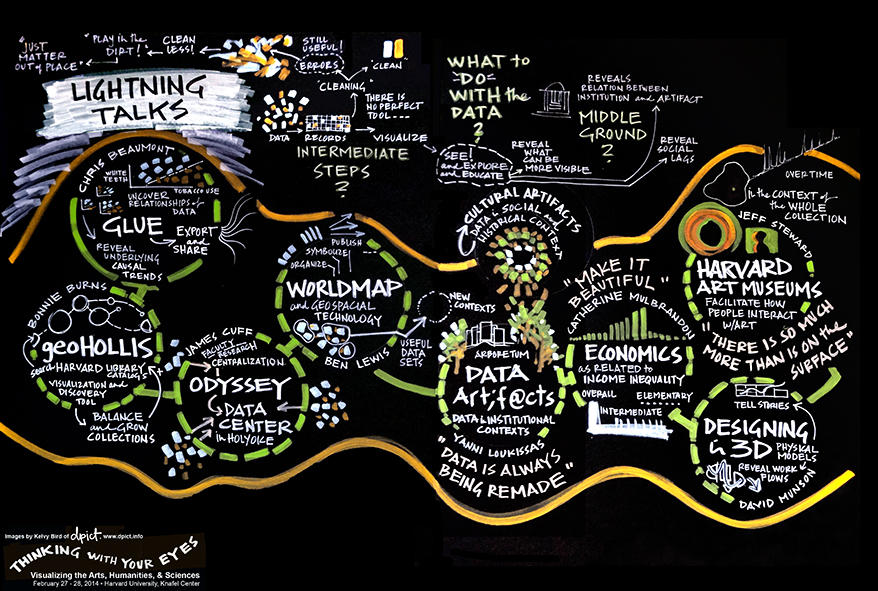 "JUST
MATTER
OUT of PLACE"
"PLAY in the
DIRT!"
CLEAN
LESS!
STILL
USEFUL!
ERRORS
"CLEAN"
"CLEANING"
THERE IS
NO PERFECT
TOOL
DATA
RECORDS
VISUALIZE
INTERMEDIATE
STEPS
?
LIGHTNING
TALKS
WHAT to
DO
WITH the
DATA
?
SEE!
and EXPLORE
and EDUCATE
REVEAL
WHAT
CAN BE
MORE VISIBLE
REVEALS
RELATION BETWEEN
INSTITUTION and ARTIFACT
MIDDLE
GROUND
?
REVEAL
SOCIAL
LAGS
OVERTIME
in the CONTEXT of
the WHOLE
COLLECTION
CHRIS BEAUMONT
WHITE
TEETH
TOBACCO USE
UNCOVER
RELATIONSHIPS of
DATA
GLUE
EXPORT
and
SHARE
REVEAL
UNDERLYING
CAUSAL
TRENDS
BONNIE BURNS
geoHOLLIS
Search HARVARD LIBRARY
CATALOGS
VISUALIZATION and
DISCOVERY
TOOL
BALANCE
and GROW
COLLECTIONS
JAMES CUFF
FACULTY
RESEARCH
CENTRALIZATION
ODYSSEY
DATA
CENTER
in HOLYOKE
PUBLISH
SYMBOLIZE
ORGANIZE
WORLDMAP
and GEOSPACIAL
TECHNOLOGY
BEN LEWIS
NEW
CONTEXTS
USEFUL
DATA
SETS
CULTURAL ARTIFACTS
DATA in SOCIAL and
HISTORICAL CONTEXT
ARBORETUM
DATA
Art;f@cts
DATA & INSTITUTIONAL
CONTEXTS
YANNI LOUKISSAS
"DATA IS ALWAYS
BEING REMADE"
"MAKE IT
BEAUTIFUL"
CATHERINE MULBRANDON
ECONOMICS
as RELATED to
INCOME INEQUALITY
OVERALL
ELEMENTARY
INTERMEDIATE
JEFF STEWARD
HARVARD
ART MUSEUMS
FACILITATE HOW
PEOPLE INTERACT
W/ART
"THERE IS SO MUCH
MORE THAN IS ON the
SURFACE"
TELL STORIES
DESIGNING
in 3D
PHYSICAL
MODELS
REVEAL WORK
FLOWS
DAVID MUNSON
Images by Kelvy Bird of dpict. www.dpict.info
THINKING WITH YOUR EYES
Visualizing the Arts, Humanities, & Sciences
February 27 - 28, 2014 • Harvard University, Knafel Center